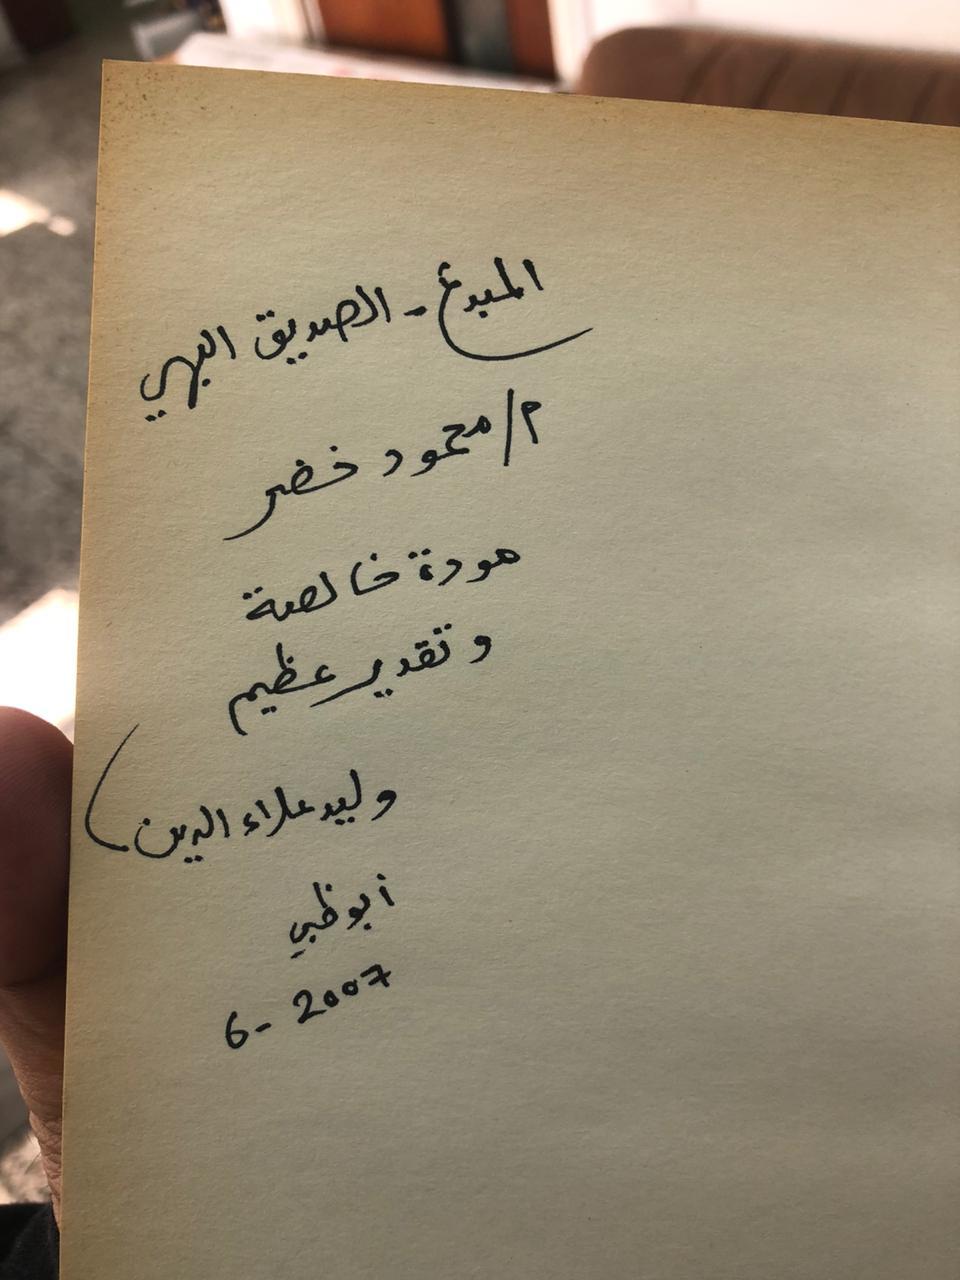 المبدع - الصديق البهي
م/ محمود خضر
مودة خالصة
وتقدير عظيم
وليد علاء الدين
أبوظبي
6-2007